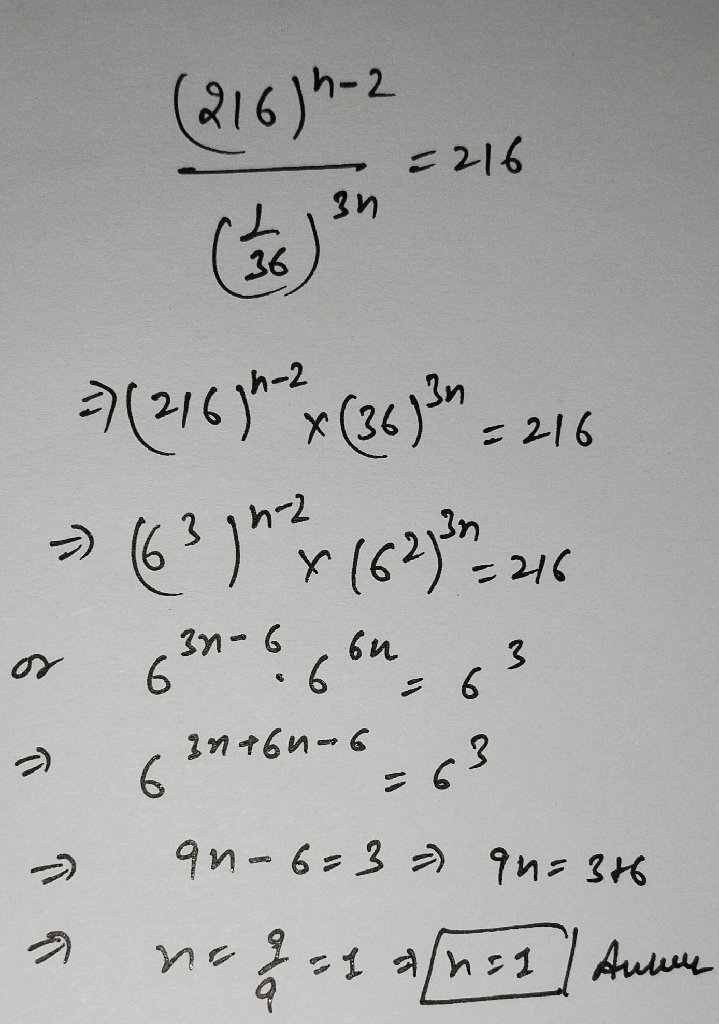 (216)^{n-2} / (1/36)^{3n} = 216
⇒ (216)^{n-2} × (36)^{3n} = 216
⇒ (6^3)^{n-2} × (6^2)^{3n} = 216
or 6^{3n-6} · 6^{6n} = 6^3
⇒ 6^{3n+6n-6} = 6^3
⇒ 9n-6=3 ⇒ 9n=3+6
⇒ n = 9/9 = 1 ⇒ n=1 Answer